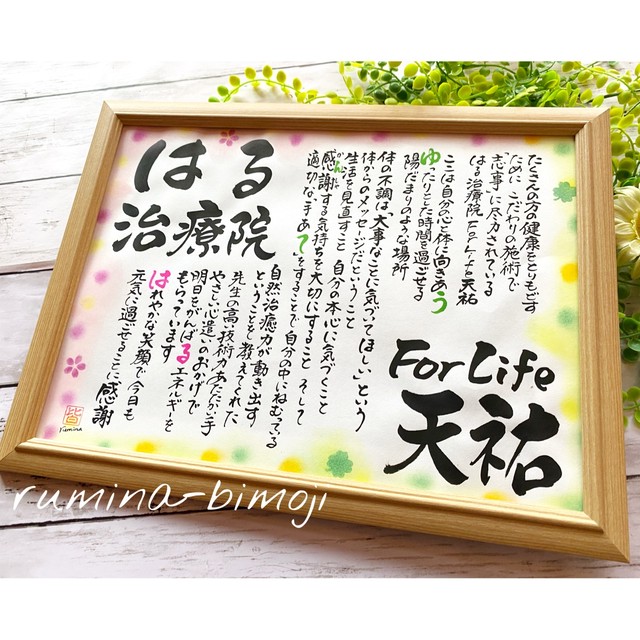 はる
治療院
たくさんの方の健康をとりもどす
ために こだわりの施術で
"志事"に尽力されている
はる治療院 For Life 天祐
ここは自分の心と体に向きあう
ゆったりとした時間を過ごせる
陽だまりのような場所
体の不調は大事なことに気づいてほしいという
体からのメッセージだということ
生活を見直すこと 自分の本心に気づくこと
感謝する気持ちを大切にすること そして
適切な"手あて"をすることで自分の中にねむってる
自然治癒力が動き出す
ということを教えてくれた
先生の高い技術力 あたたかい手
やさしい心遣いのおかげで
明日をがんばるエネルギーを
もらっています
はれやかな笑顔で今日も
元気に過ごせることに感謝
For Life
天祐
rumina
rumina-bimoji